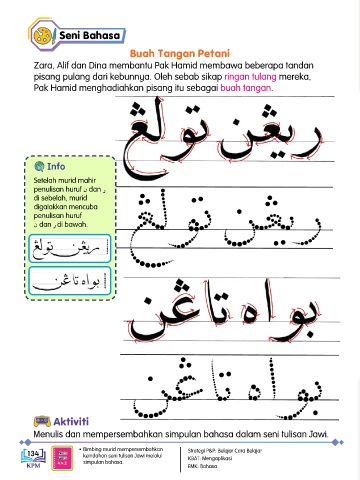 Seni Bahasa
Buah Tangan Petani
Zara, Alif dan Dina membantu Pak Hamid membawa beberapa tandan
pisang pulang dari kebunnya. Oleh sebab sikap ringan tulang mereka,
Pak Hamid menghadiahkan pisang itu sebagai buah tangan.
ريڠن تولڠ
Info
Setelah murid mahir
penulisan huruf
dan
di sebelah, murid
digalakkan mencuba
penulisan huruf
dan
di bawah.
ريڠن تولڠ
بواه تاڠن
ريڠن تولڠ
بواه تاڠن
بواه تاڠن
Aktiviti
Menulis dan mempersembahkan simpulan bahasa dalam seni tulisan Jawi.
134
KPM
4.4.2
• Bimbing murid mempersembahkan
keindahan seni tulisan Jawi melalui
simpulan bahasa.
Strategi P&P: Belajar Cara Belajar
KBAT: Mengaplikasi
EMK: Bahasa